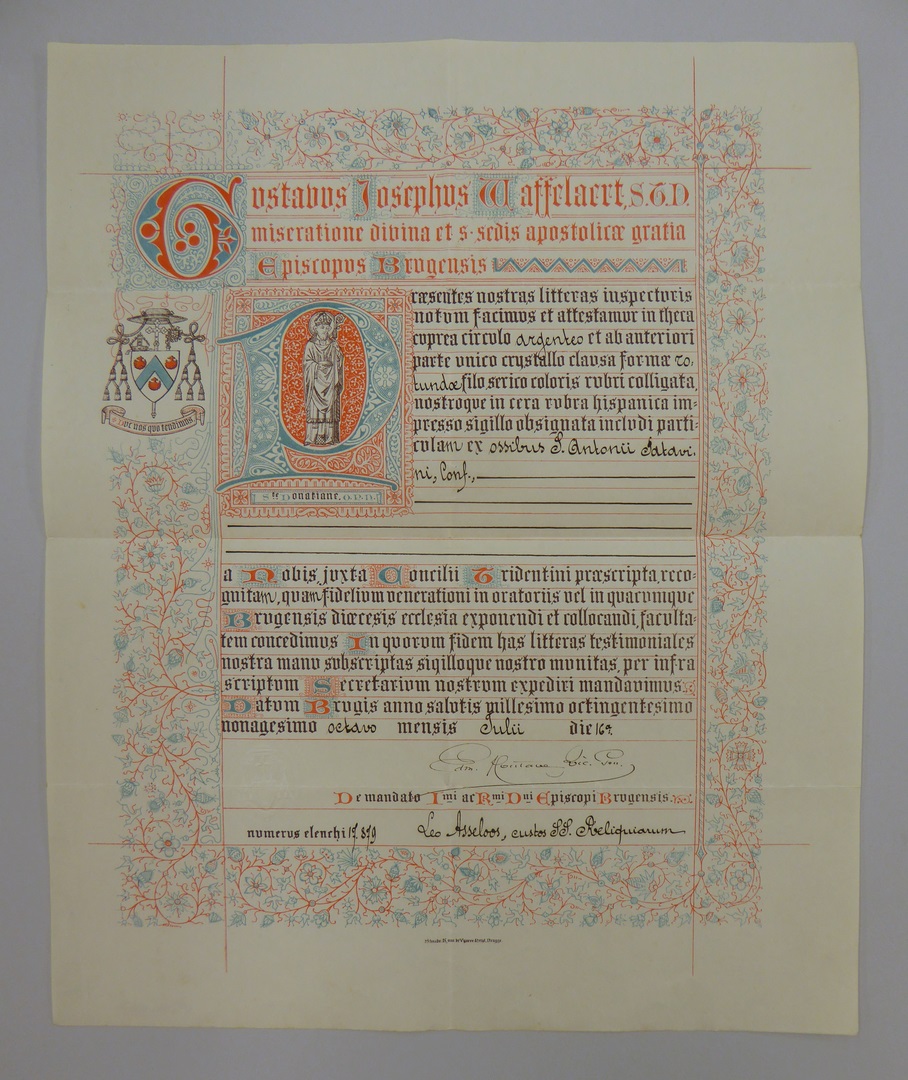 Gustavus Josephus Waffelaert, S.T.D.
miseratione divina et s. sedis apostolicæ gratia
Episcopus Brugensis
Præsentes nostras litteras inspecturis
notum facimus et attestamur in theca
cuprea circulo argenteo et ab anteriori
parte unico crystallo clausa formæ ro-
tundæ filo serico coloris rubri colligata,
nostroque in cera rubra hispanica im-
presso sigillo obsignata includi parti-
culam ex ossibus S. Antonii Patavi-
ni, Conf.,
Duc nos quo tendimus
Ste Donatiane, O.P.N.
a Nobis, juxta Concilii Tridentini præscripta, reco-
gnitam, quam fidelium venerationi in oratoriis vel in quacumque
Brugensis diœcesis ecclesia exponendi et collocandi, faculta-
tem concedimus In quorum fidem has litteras testimoniales
nostra manu subscriptas sigilloque nostro munitas, per infra
scriptum Secretarium nostrum expediri mandavimus.
Datum Brugis anno salutis millesimo octingentesimo
nonagesimo octavo mensis Julii die 16a.
Vic. Gen.
De mandato Illmi ac Rmi Dni Episcopi Brugensis.
numerus elenchi 17.879 Leo Asseloos, custos SS. Reliquiarum